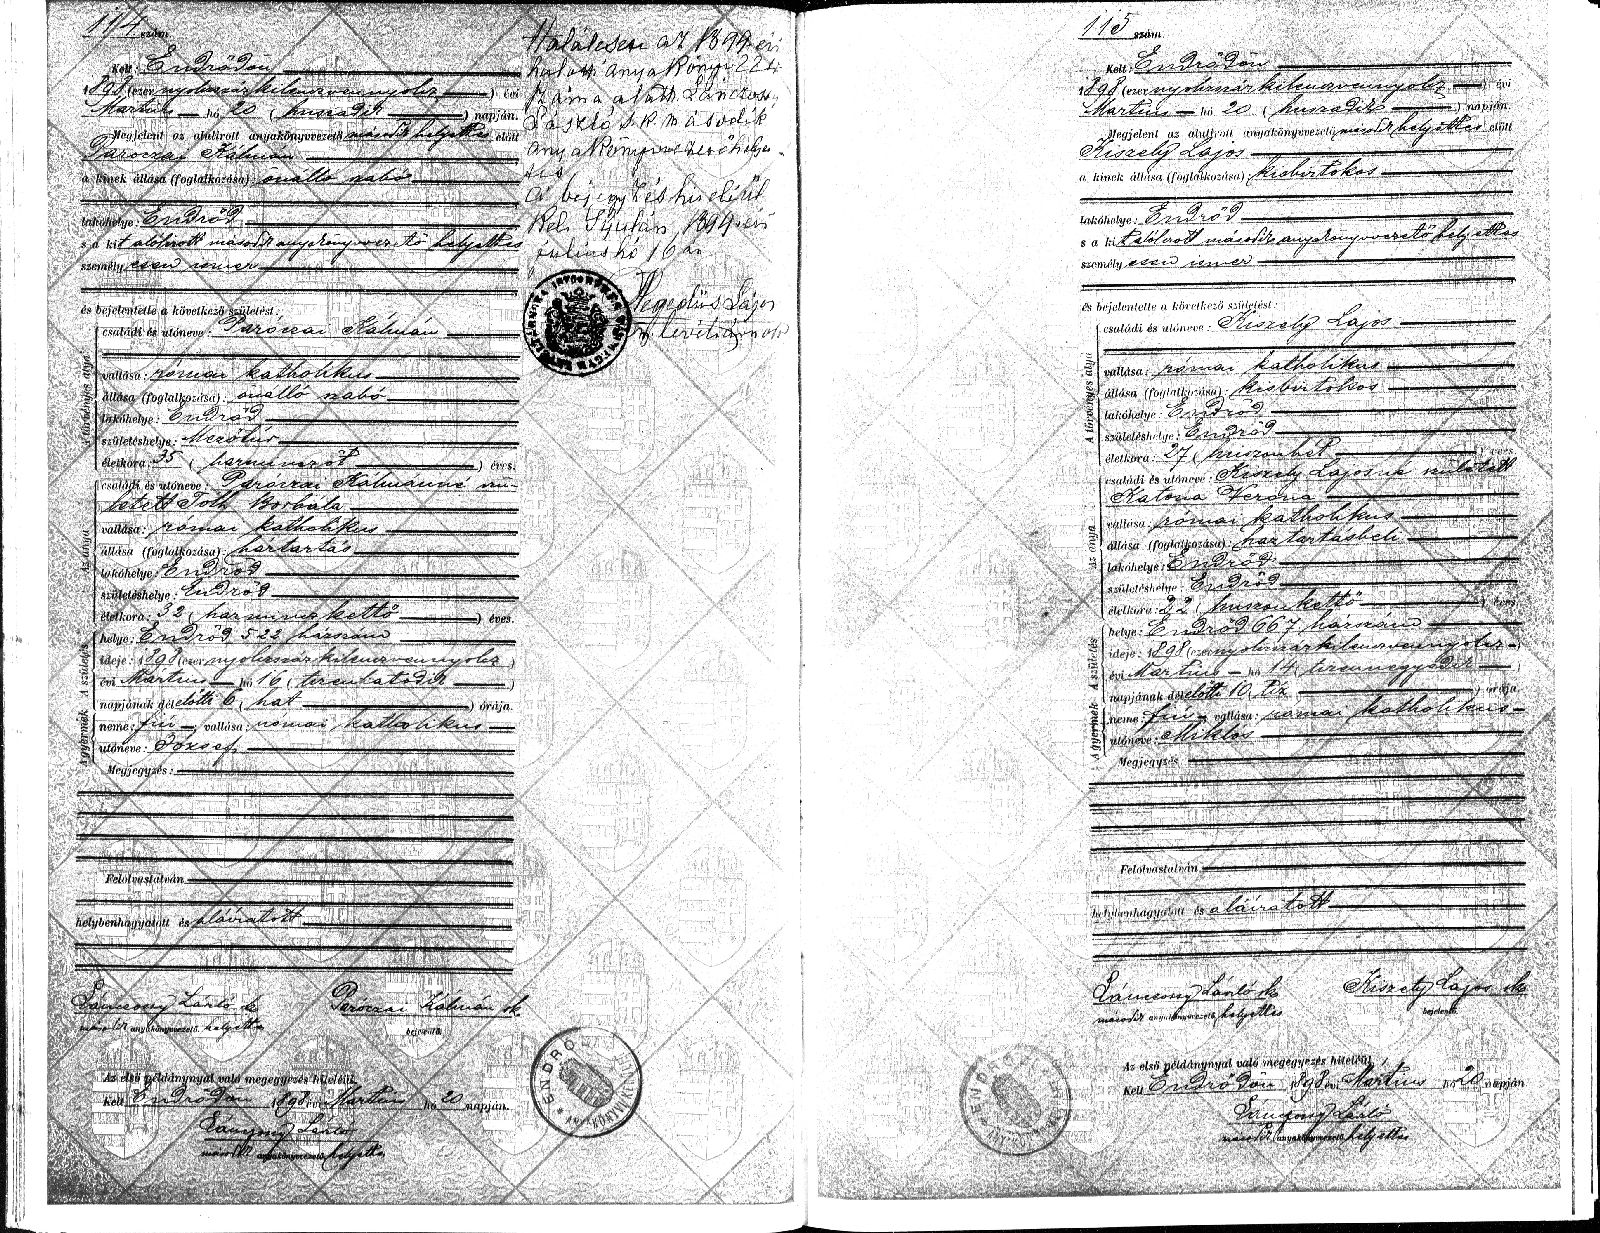 114 szám.
Kelt: Endrődön
1898 (ezer nyolczszázkilenczvennyolcz) évi
Martius hó 20 (huszadik) napján.
Megjelent az alulirott anyakönyvvezető második helyettes előtt
Paróczai Kálmán
a kinek állása (foglalkozása): önálló szabó
lakóhelye: Endrőd
s a kit alólirott második anyakönyvvezető helyettes
személyesen ismer
és bejelentette a következő születést:
A törvényes atyja
családi és utóneve: Paróczai Kálmán
vallása: római katholikus
állása (foglalkozása): önálló szabó
lakóhelye: Endrőd
születéshelye: Mezőtúr
életkora: 35 (harminczöt) éves.
Az anya
családi és utóneve: Paróczai Kálmánné szü-
letett Tóth Borbála
vallása: római katholikus
állása (foglalkozása): háztartás
lakóhelye: Endrőd
születéshelye: Endrőd
életkora: 32 (harminczkettő) éves.
A születés
helye: Endrőd 522 házszám
ideje: 1898 (ezer nyolczszázkilenczvennyolcz)
évi Mártius hó 16 (tizenhatodik)
napjának délelőtti 6 (hat) órája.
A gyermek
neme: fiú, vallása: római katholikus
utóneve: József
Megjegyzés:
Felolvastatván
helybenhagyatott és aláiratott
László sk
Paróczai Kálmán sk
második anyakönyvvezető helyettes
bejelentő.
Az első példánynyal való megegyezés hiteléül
Kelt Endrődön 1898 évi Martius hó 20 napján.
László
második anyakönyvvezető helyettes
Haláleset az 1899 évi
halotti anyakönyv 224
száma alatt
László s.k. második
anyakönyvvezető helyet-
tes
A bejegyzés hiteléül
Kelt Gyulán, 1899 évi
julius hó 16 án
Hegedüs Lajos
levéltárnok
ENDRŐD
115 szám.
Kelt: Endrődön
1898 (ezer nyolczszázkilenczvennyolcz) évi
Martius hó 20 (huszadik) napján.
Megjelent az alulirott anyakönyvvezető második helyettes előtt
Kiszely Lajos
a kinek állása (foglalkozása): kisbirtokos
lakóhelye: Endrőd
s a kit alólirott második anyakönyvvezető helyettes
személyesen ismer
és bejelentette a következő születést:
A törvényes atyja
családi és utóneve: Kiszely Lajos
vallása: római katholikus
állása (foglalkozása): kisbirtokos
lakóhelye: Endrőd
születéshelye: Endrőd
életkora: 27 (huszonhét) éves
Az anya
családi és utóneve: Kiszely Lajosné született
Katona Verona
vallása: római katholikus
állása (foglalkozása): háztartásbeli
lakóhelye: Endrőd
születéshelye: Endrőd
életkora: 22 (huszonkettő) éves.
A születés
helye: Endrőd 667 házszám
ideje: 1898 (ezer nyolczszázkilenczvennyolcz)
évi Martius hó 14 (tizennegyedik)
napjának délelőtti 10 (tíz) órája.
A gyermek
neme: fiú vallása: római katholikus
utóneve: Miklós
Megjegyzés
Felolvastatván
helybenhagyatott és aláiratott
László sk
Kiszely Lajos sk
második anyakönyvvezető helyettes
bejelentő.
Az első példánynyal való megegyezés hiteléül
Kelt Endrődön 1898 évi Martius hó 20 napján
László
második anyakönyvvezető helyettes